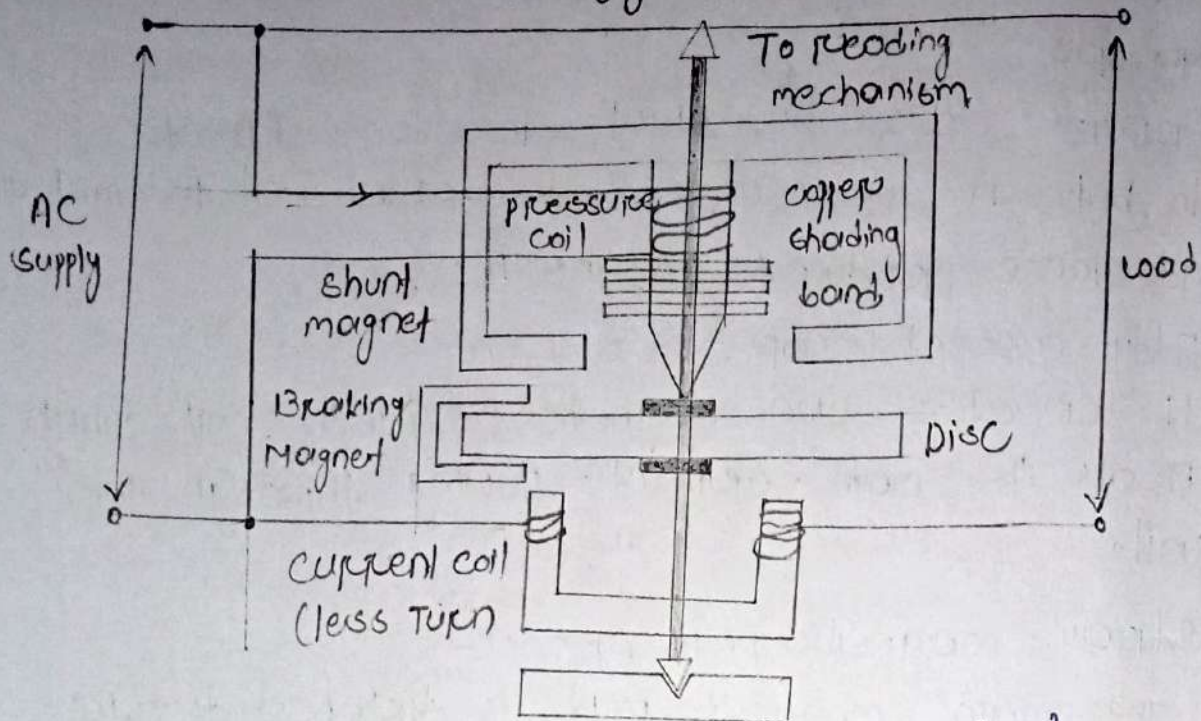 To reading
mechanism
AC
supply
pressure
coil
copper
shading
band
Load
shunt
magnet
Braking
Magnet
Disc
current coil
(less Turn)